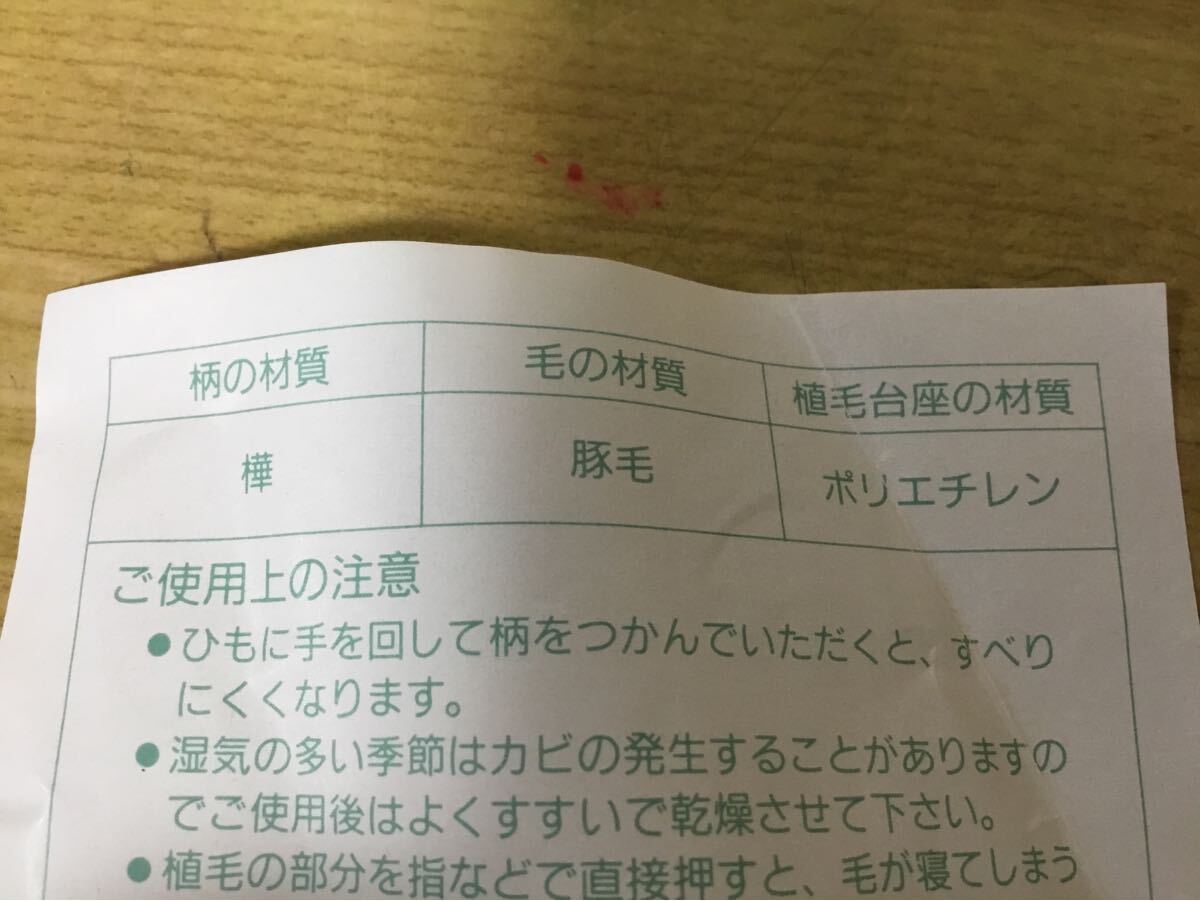 柄の材質 毛の材質 植毛台座の材質
樺 豚毛 ポリエチレン
ご使用上の注意
●ひもに手を回して柄をつかんでいただくと、すべり
にくくなります。
●湿気の多い季節はカビの発生することがありますの
でご使用後はよくすすいで乾燥させて下さい。
●植毛の部分を指などで直接押すと、毛が寝てしまう